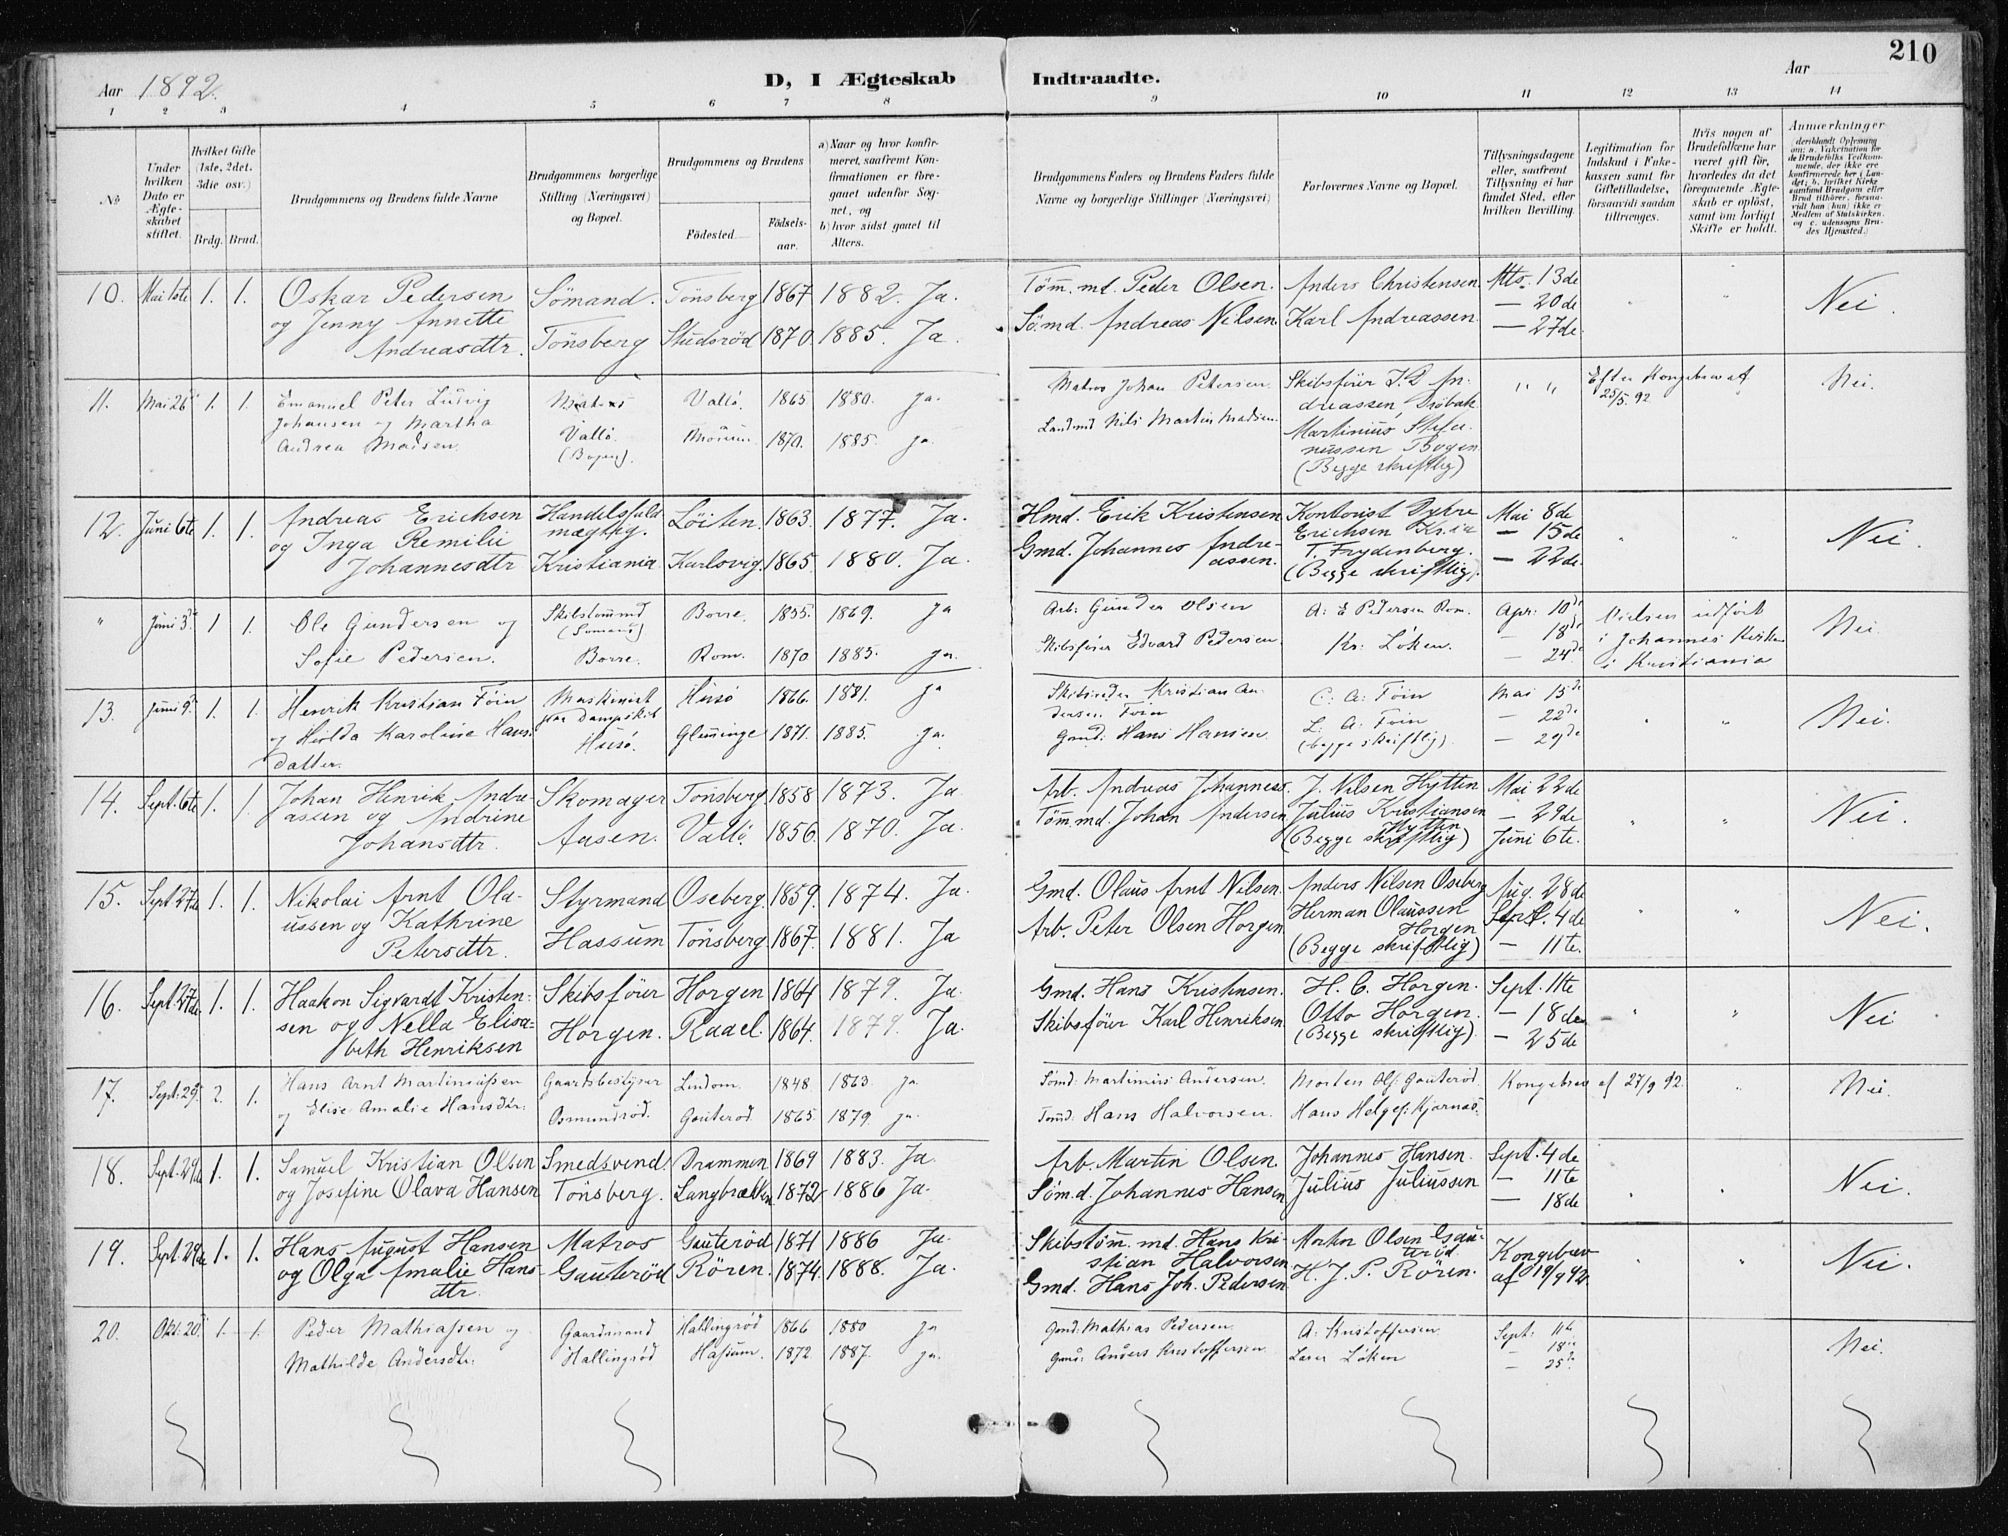 210
Aar 1892.
D, I Ægteskab Indtraadte.
Aar
1 2 3 4 5 6 7 8 9 10 11 12 13 14
No
Under hvilken Dato er Ægteskabet stiftet.
Hvilket Gifte (1ste, 2det. 3die osv.)
Brdg. Brud.
Brudgommens og Brudens fulde Navne
Brudgommens borgerlige Stilling (Næringsvei) og Bopæl.
Brudgommens og Brudens
Födested.
Födselsaar.
a) Naar og hvor konfirmeret, saafremt Konfirmationen er foregaaet udenfor Sognet, og
b) hvor sidst gaaet til Alters.
Brudgommens Faders og Brudens Faders fulde Navne og borgerlige Stillinger (Næringsvei)
Forlovernes Navne og Bopæl.
Tillysningsdagene eller, saafremt Tillysning ei har fundet Sted, efter hvilken Bevilling.
Legitimation for Indskud i Enkekassen samt for Giftetilladelse, forsaavidt saadan tiltrænges.
Hvis nogen af Brudefolkene har været gift för, hvorledes da det foregaaende Ægteskab er oplöst, samt om lovligt Skifte er holdt.
Anmærkninger
10. Mai 1ste 1. 1. Oskar Pedersen Sömand. Tönsberg 1867 1882. Ja. Töm. md. Peder Olsen. Anders Christensen. Mts. 13de " " Nei.
og Jenny Annette Andreasdtr. Tönsberg Studsröd 1870. 1885. Ja. Sömd. Andreas Nilsen. Karl Andreassen. — 20de
— 27de.
11. Mai 26 1. 1. Emanuel Peter Ludvig Matros Vallö. 1865 1880. ja. Matros Johan Petersen. Skibsförer " " Efter Kongebrev af 25/5.92 Nei.
Johansen og Martha Vallö. 1870. 1885. ja. Landmd Nils Martin Madsen. dreassen, Dröbak
Andrea Madsen. (Bogen). Martinius Stefanussen Bogen
(Begge skriftlig)
12. Juni 6te 1. 1. Andreas Erichsen Handelsfuldmægtig. Löiten. 1863. 1877. Ja. Hmd. Erik Kristensen Kontorist Mai 8de " " Nei.
og Inga Remilie Erichsen Kr.ia — 15de
Johannesdtr Kristiania Karlsvig. 1865. 1880. Ja. Gmd. Johannes Andreassen. T. Frydenberg. — 22de.
(Begge skriftlig).
" Juni 3d 1 1. Ole Gundersen og Skibstömmd (Sömand) Borre. 1855. 1869. ja Arb: Gunder Olsen A: E Pedersen Rom. Apr: 10de Vielsen udfört Nei.
Sofie Pedersen. Borre. Rom. 1870 1885. ja. Skibsförer Edvard Pedersen. Kr: Löken. — 18de i Johannes Kirken
— 24de i Kristiania
13. Juni 9d 1. 1. Henrik Kristian Föin Maskinist Husö 1866. 1881. ja Skibsreder Kristian Andersen Föin C. A: Föin Mai 15de " " Nei.
og Hulda Karoline Hansdatter. paa Dampskib Husö. Glimminge 1871. 1885. ja. Gmd: Hans Hansen. L. A: Föin — 22de
(begge skriftlig). — 29de
14. Sept. 6te 1. 1. Johan Henrik Andreassen og Andrine Skomager Tönsberg 1858 1873 Ja Arb. Andreas Johanness. J. Nilsen Hytten Mai 22de " " Nei.
Johansdtr. Aasen. Vallö. 1856. 1870. Ja. Töm. md. Johan Andersen Julius Kristiansen Hytten — 29de
(Begge skriftlig) Juni 6te.
15. Sept 27de 1. 1. Nikolai Arnt Olaussen og Kathrine Styrmand Oseberg. 1859. 1874. Ja. Gmd. Olaus Arnt Nilsen. Anders Nilsen Oseberg Aug. 28de " " Nei.
Petersdtr. Hassum Tönsberg 1867. 1881. Ja Arb. Peter Olsen Horgen Herman Olaussen Horgen Sept. 4de
(Begge skriftlig) — 11te.
16. Sept. 27de 1. 1. Haakon Sigvardt Kristensen og Nella Elisabeth Henriksen Skibsförer Horgen 1864 1879. Ja. Gmd. Hans Kristensen. H. C. Horgen. Sept. 11te " " Nei
Horgen. Raael. 1864. 1879. Ja. Skibsförer Karl Henriksen Otto Horgen. — 18de
(Begge skriftlig). — 25de
17. Sept: 29 2. 1. Hans Arnt Martiniussen Gaardsbestyrer Lindom. 1848 1863. ja. Sömd: Martinius Andersen. Morten Ols: Gauteröd. Kongebrev af 27/9 92. " Nei.
og Elise Amalie Hansdtr: Osmundröd. Gauteröd 1865. 1879. ja. Tömd: Hans Halvorsen. Hans Helges: Kjærnås.
18. Sept. 29de 1. 1. Samuel Kristian Olsen Smedsvend. Drammen 1869 1883. Ja. Arb. Martin Olsen. Johannes Hansen. Sept. 4de " " Nei.
og Josefine Olava Hansen Tönsberg. Langbrækken 1872 1886 Ja. Sömd. Johannes Hansen Julius Juliussen — 11te
— 18de
19. Sept. 29de 1. 1. Hans August Hansen Matros Gauteröd 1871 1886 Ja. Skibstöm. md. Hans Kristian Halvorsen Morten Olsen Gauteröd Kongebrev af 19/9 92. " " Nei.
og Olga Amalie Hansdtr. Gauteröd Rören. 1874. 1888. Ja. Gmd. Hans Joh. Pedersen H. J. P. Rören.
20. Okt: 20d 1. 1. Peder Mathiassen og Gaardmand Hallingröd 1866 1880 ja Gmd: Mathias Pedersen. A: Kristoffersen Sept: 11te Nei.
Mathilde Andersdtr: Hallingröd Hassum. 1872. 1887. ja. Gmd: Anders Kristoffersen Lærer Löken — 18de
— 25de